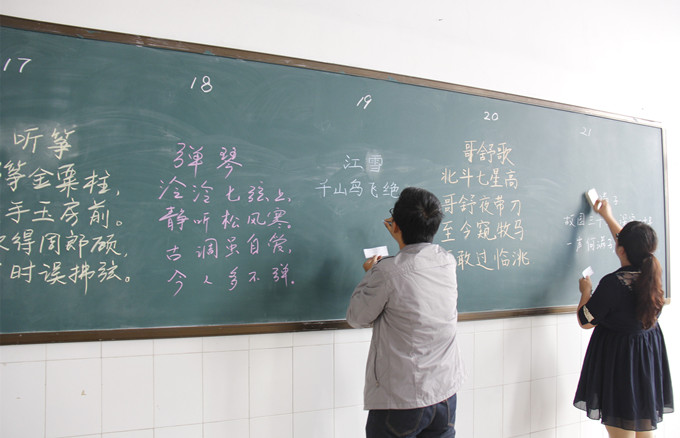 17
听筝
筝金粟柱,
手玉房前。
得周郎顾,
时误拂弦。
18
弹琴
泠泠七弦上,
静听松风寒.
古调虽自爱,
今人多不弹.
19
江雪
千山鸟飞绝
20
哥舒歌
北斗七星高
哥舒夜带刀
至今窥牧马
敢过临洮
21
子
国三
一声何满